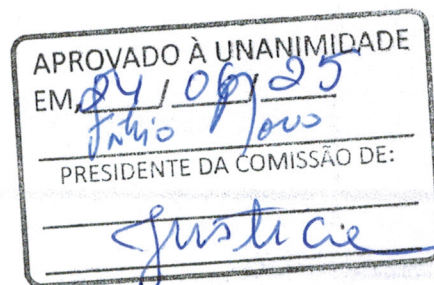 APROVADO À UNANIMIDADE
EM, 24 / 06 / 25
Fábio Novo
PRESIDENTE DA COMISSÃO DE:
Justiça